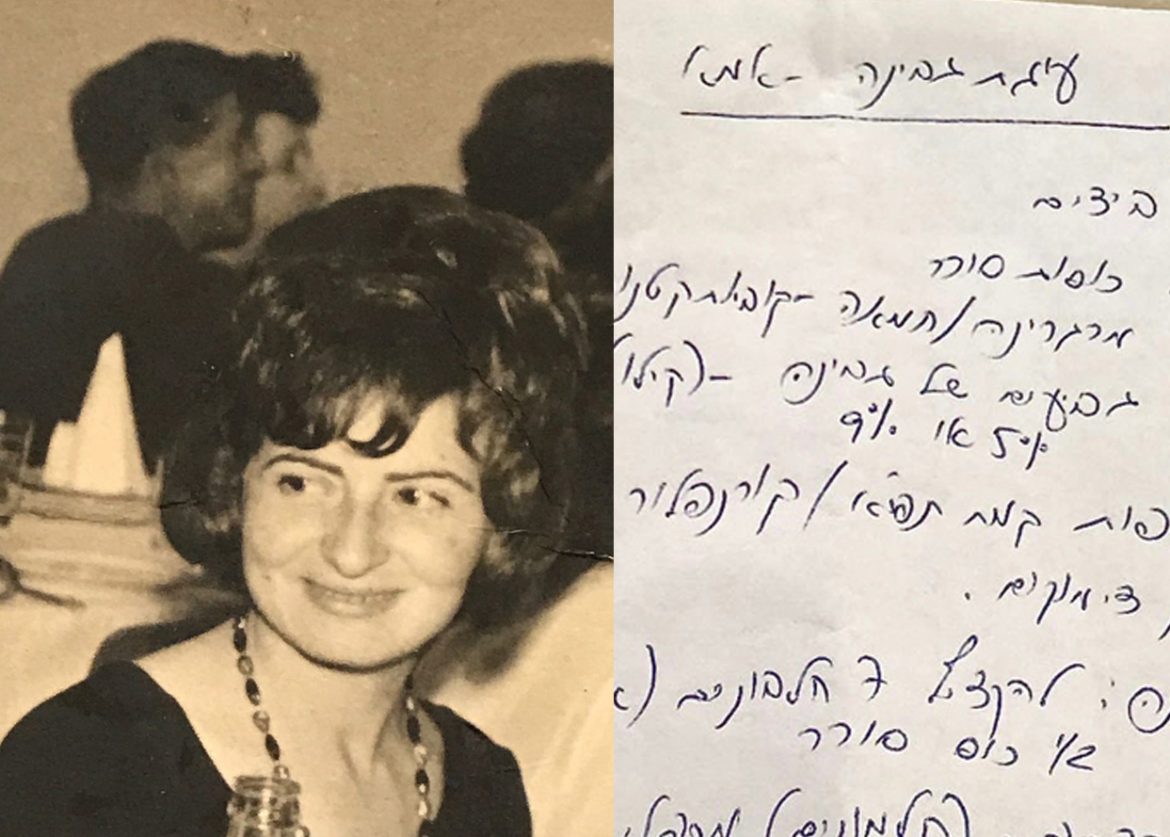 עוגת גבינה - אמא
ביצים
כוסות סוכר
מרגרינה / חמאה - קוביות קטנו
גביעים של גבינה - (קילו
5% או 9%
כפות קמח תפו"א / קורנפלור
צימוקים.
להקציף 7 חלבונים
1/2 כוס סוכר
(חלמונים)